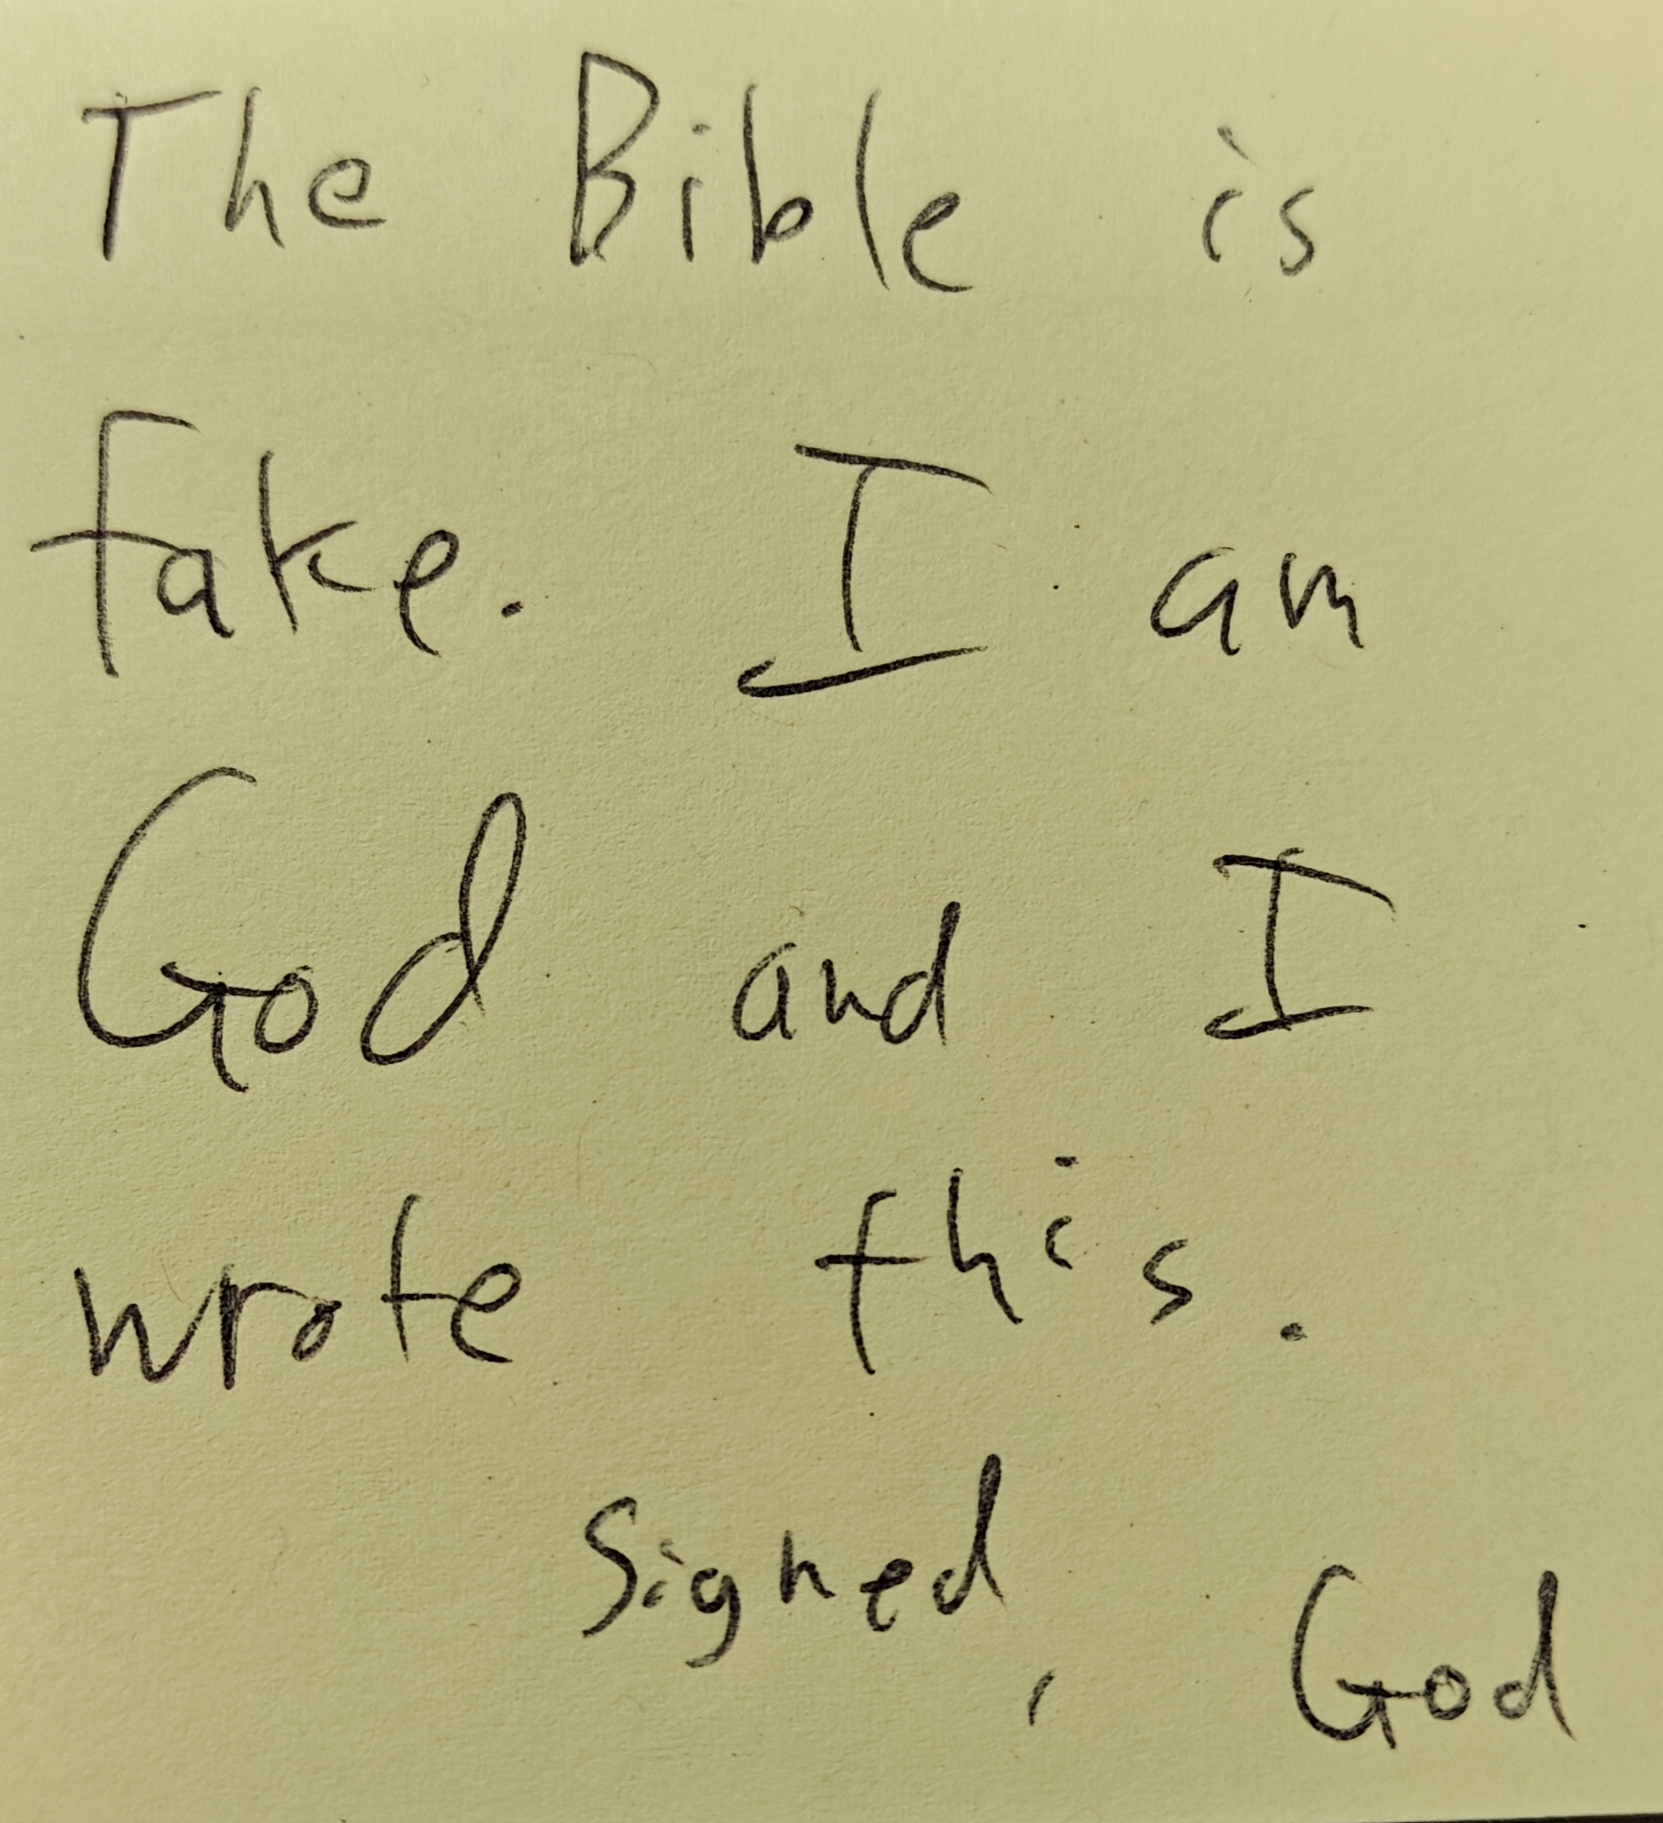 The Bible is
fake. I am
God and I
wrote this.
Signed, God